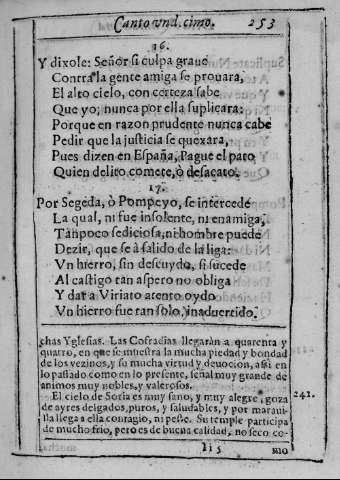 Canto vnd. cimo. 253
16.
Y dixole: Señor si culpa graue
Contra la gente amiga se prouara,
El alto cielo, con certeza sabe
Que yo, nunca por ella suplicara:
Porque en razon prudente nunca cabe
Pedir que la justicia se quexara,
Pues dizen en España, Pague el pato
Quien delito comete, ò desacato.
17.
Por Segeda, ò Pompeyo, se intercede
La qual, ni fue insolente, ni enamiga,
Tanpoco sediciosa, ni hombre puede
Dezir, que se à salido de la liga:
Vn hierro, sin descuydo, si sucede
Al castigo tan aspero no obliga
Y dar a Viriato atento oydo
Vn hierro fue tan solo, inaduertido.
chas Yglesias. Las Cofradias llegaràn a quarenta y
quatro, en que se muestra la mucha piedad y bondad
de los vezinos, y su mucha virtud y deuocion, assi en
lo passado como en lo presente, señal muy grande de
animos muy nobles, y valerosos.
El cielo de Soria es muy sano, y muy alegre, goza 241.
de ayres delgados, puros, y saludables, y por maraui-
lla llega a ella contagio, ni peste. Su temple participa
de mucho frio, pero es de buena calidad, no seco co-
Ii 5 mo